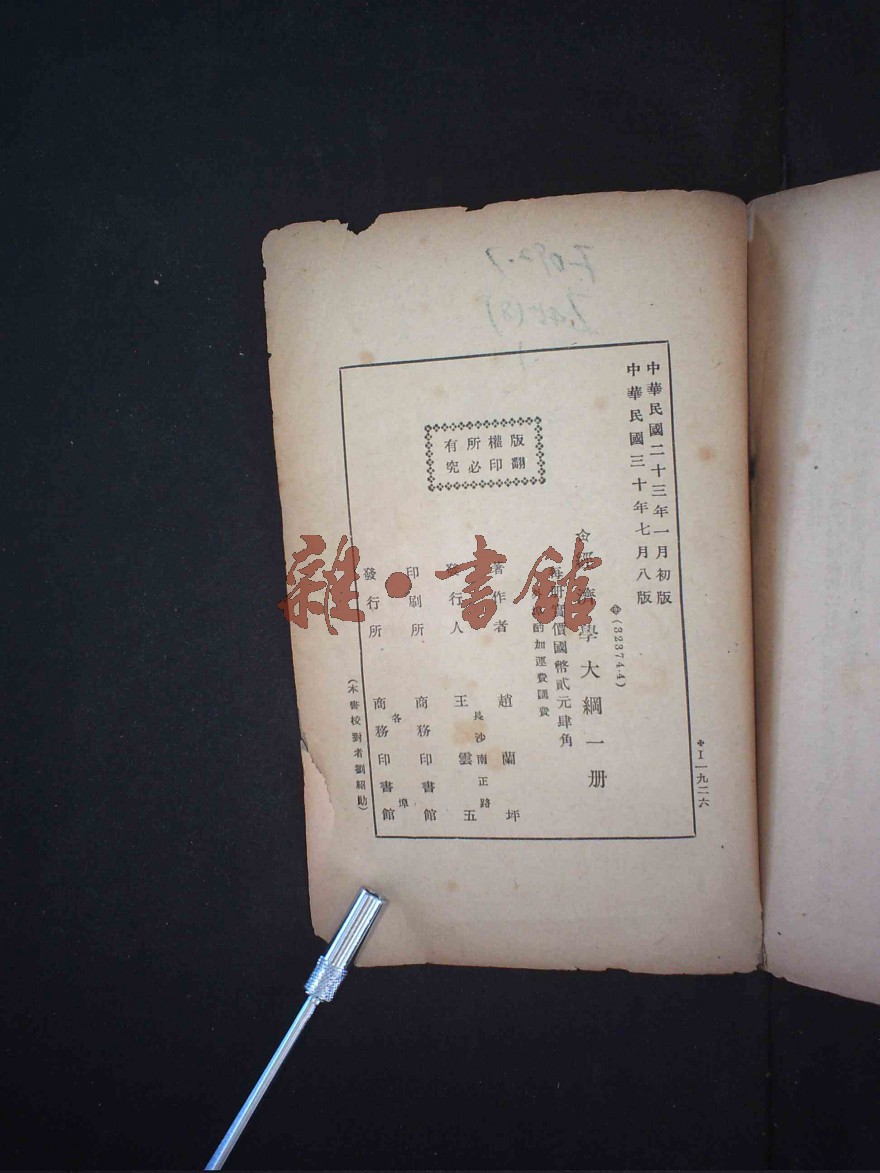 中華民國二十三年一月初版
中華民國三十年七月八版
✥(32374·4)
經濟學大綱一册
每册實價國幣貳元肆角
加運費匯費
版權所有
翻印必究
著作者 趙蘭坪
發行人 王雲五
長沙南正路
印刷所 商務印書館
各埠
發行所 商務印書館
(本書校對者劉紹勛)
✥I一九二六
雜·書館